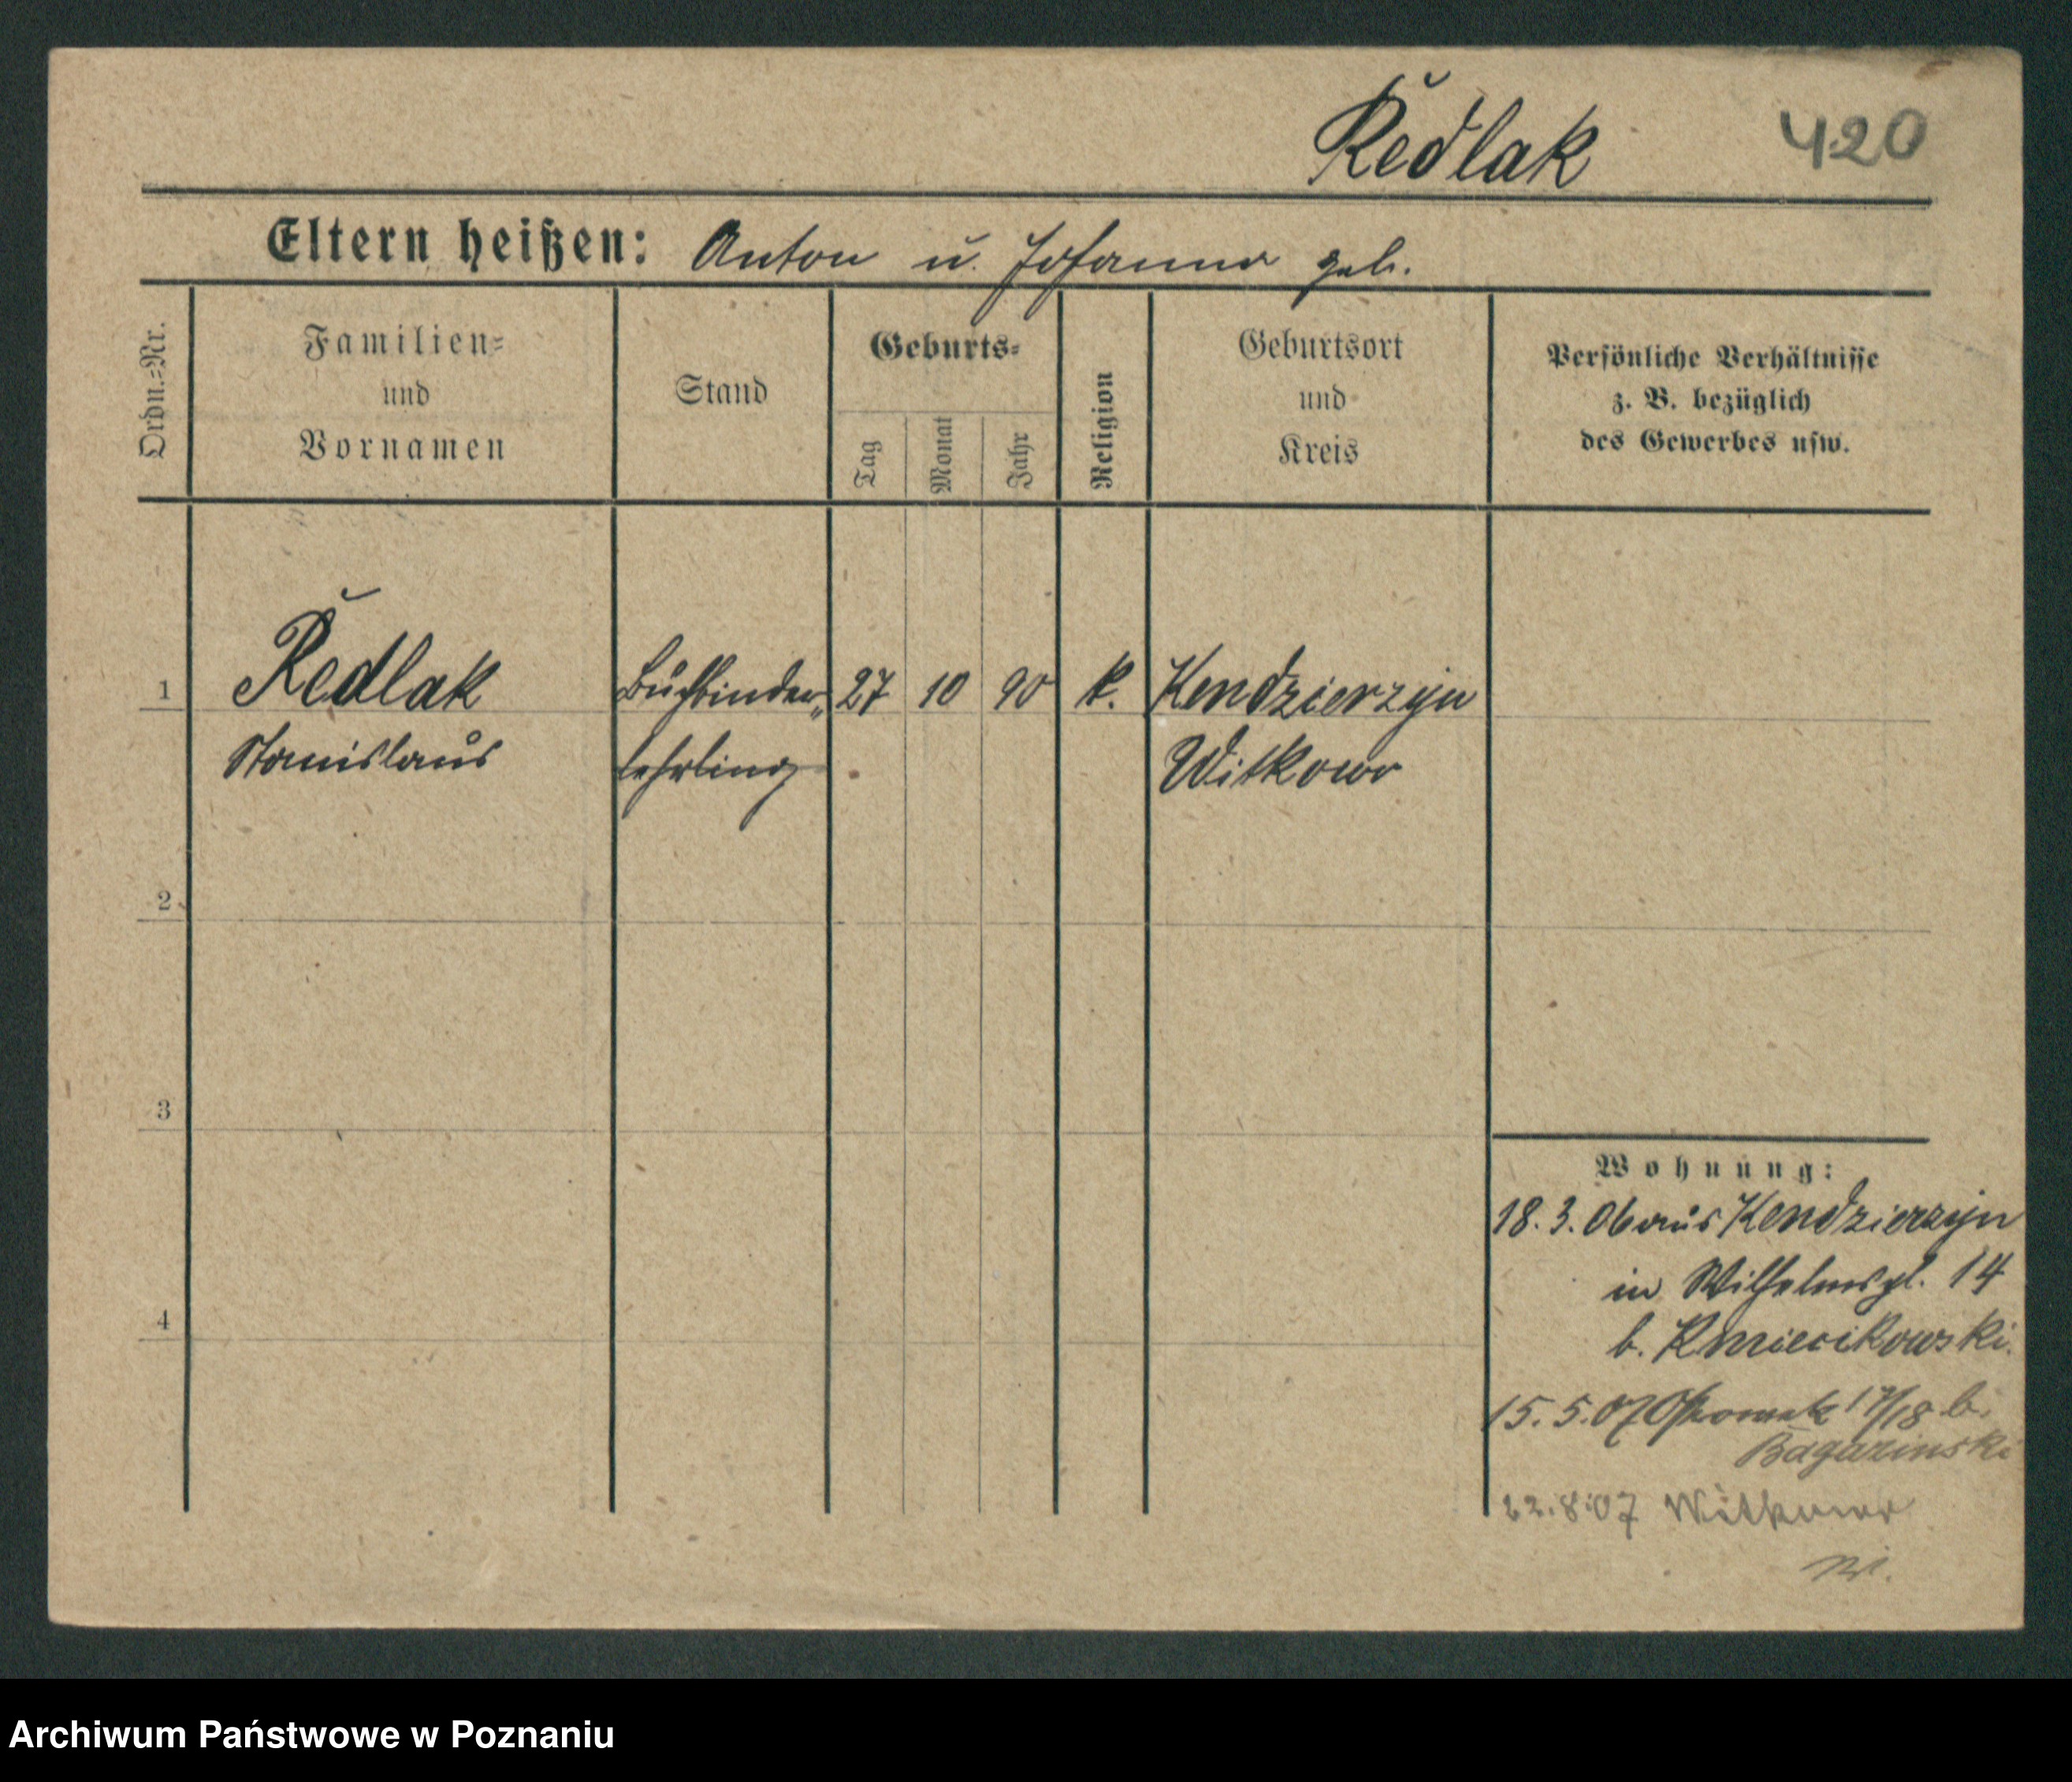 Redlak 420
Eltern heißen: Anton u. Johanna geb.
Ordn.=Nr.
Familien=
und
Vornamen
Stand
Geburts=
Tag
Monat
Jahr
Religion
Geburtsort
und
Kreis
Persönliche Verhältnisse
z. B. bezüglich
des Gewerbes usw.
1 Redlak Buchbinder„ 27 10 90 k. Kendzierzyn
Stanislaus lehrling Witkowo
2
3
4
Wohnung:
18. 3. 06 aus Kendzierzyn
in Wilhelmspl. 14
b. Kmiecikowski.
15. 5. 07 17/18 b.
Bagazinski
22.8.07 Witkowo
Archiwum Państwowe w Poznaniu